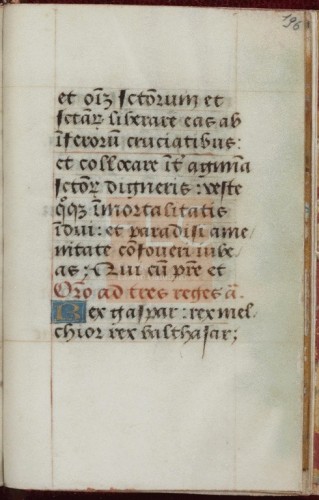 196
et oīz sctōrum et
sctāꝝ liberare eas ab
īferorū cruciatibus:
et collocare īt̄ agmīa
sctōꝝ digneris: veste
q̊qꝫ īmortalitatis
īdui: et paradisi ame
nitate cōfoueri iube
as; Qui cū pr̄e et
Or̄o ad tres reges ā.
Rex gaspar: rex mel
chior rex balthasar;